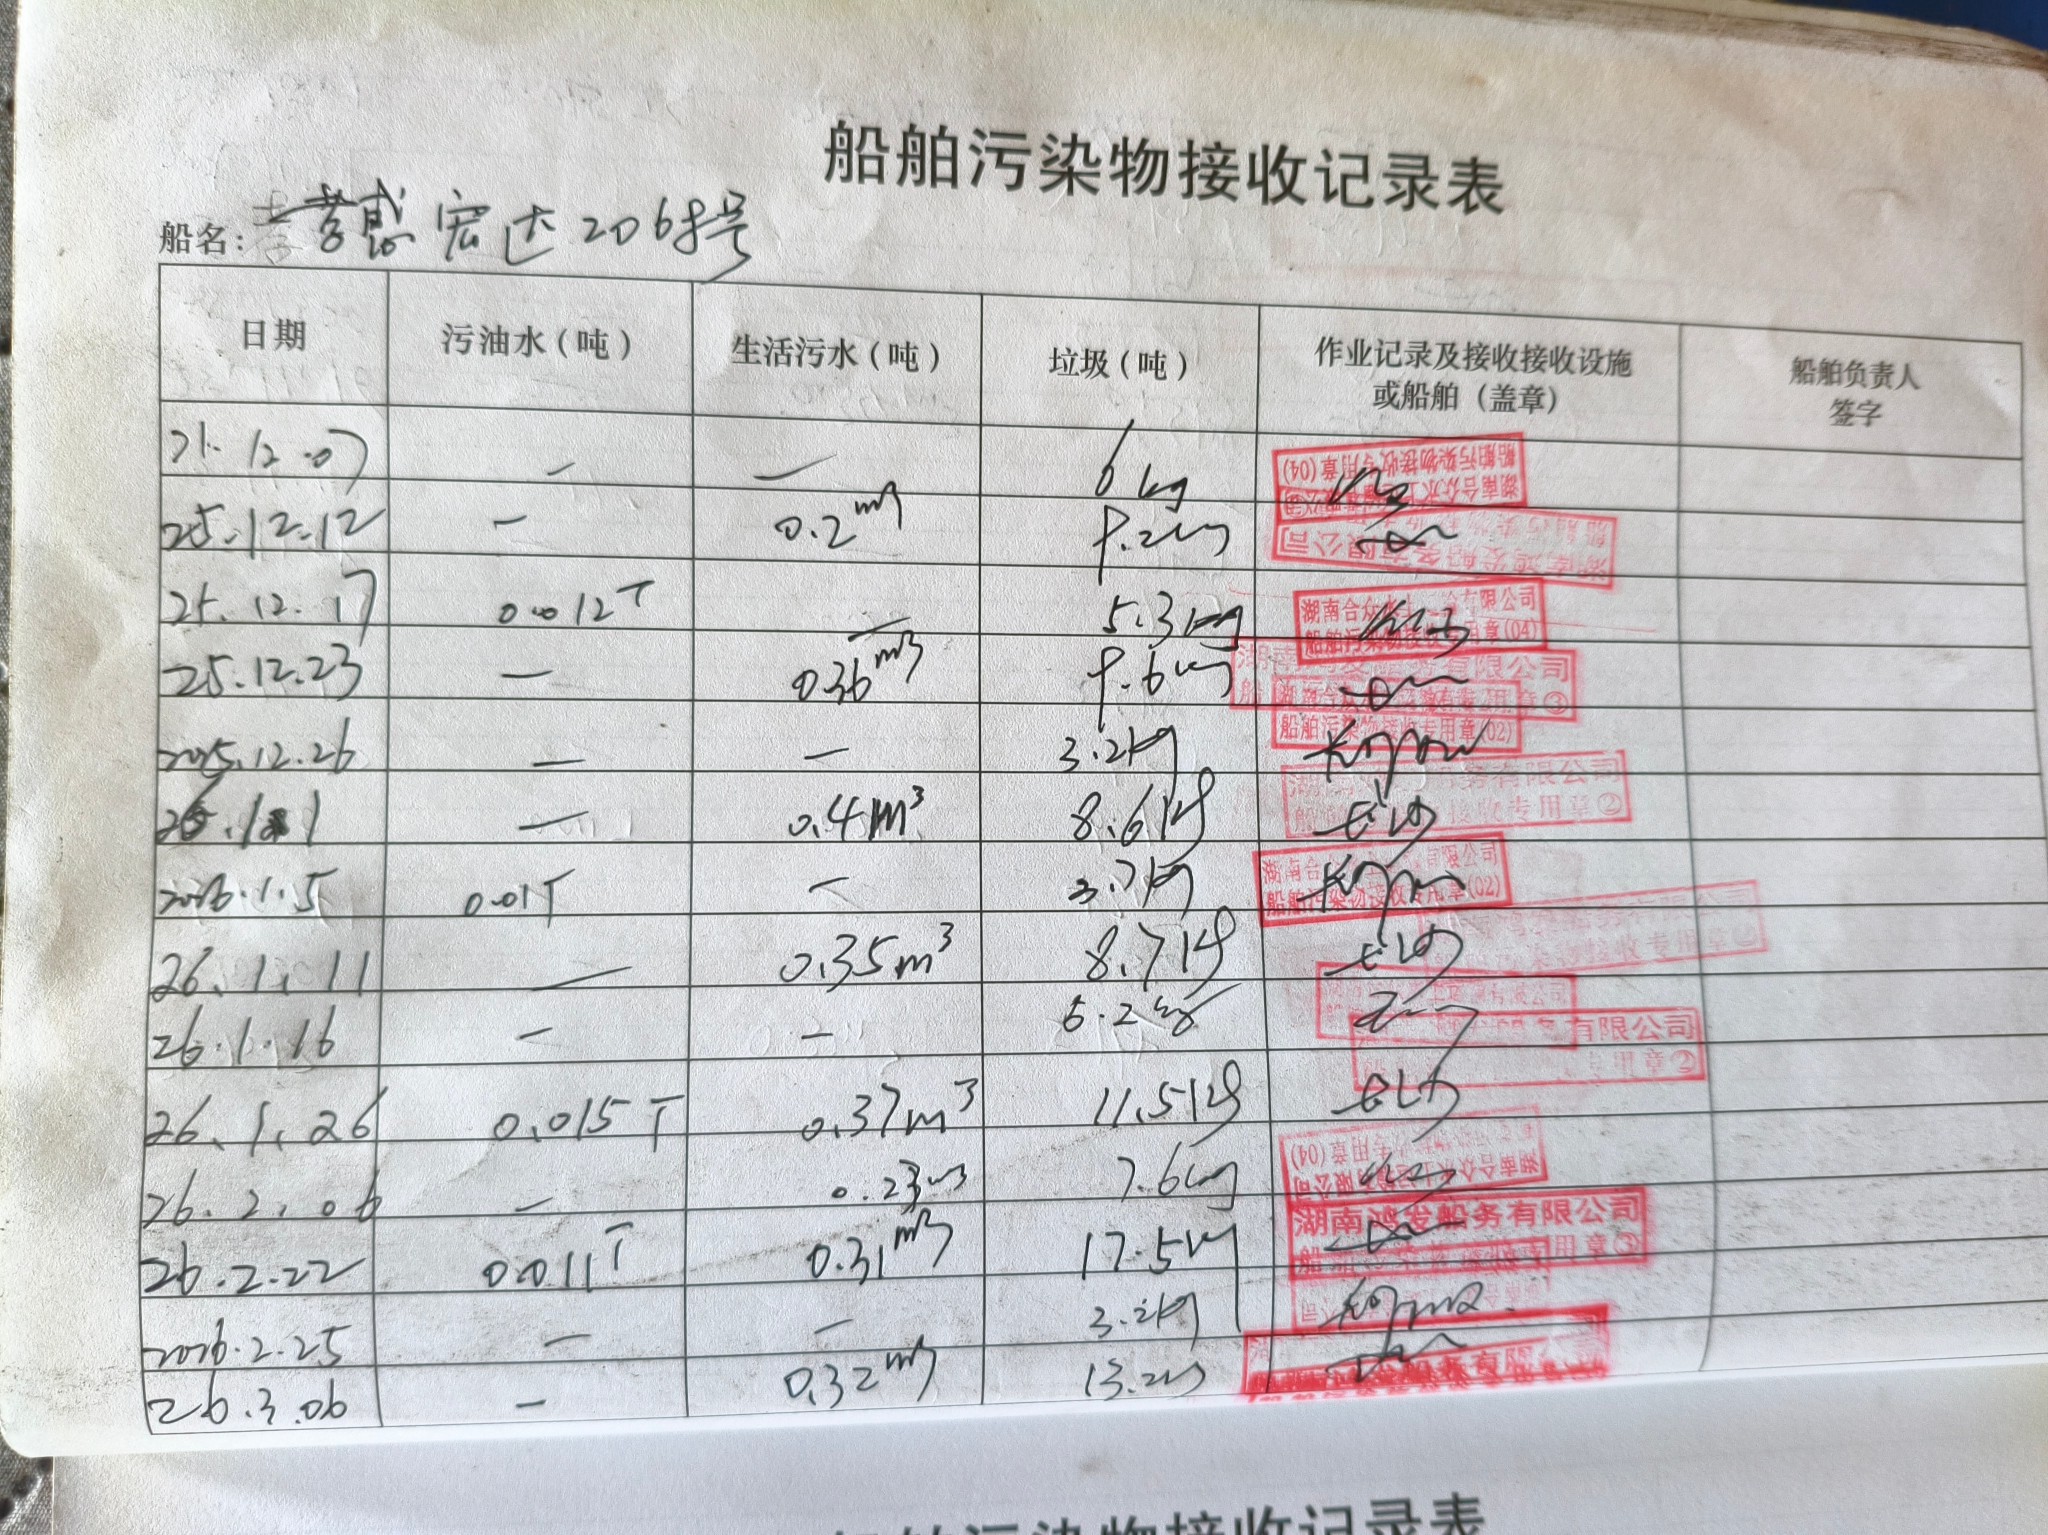 船舶污染物接收记录表
船名: 孝感宏达2068号
日期 污油水（吨） 生活污水（吨） 垃圾（吨） 作业记录及接收接收设施或船舶（盖章） 船舶负责人签字
25.12.07 — — 6kg
25.12.12 — 0.2m³ 9.2kg
25.12.17 0.012T — 5.3kg 湖南合众 有限公司 船舶污染物接收专用章(04)
25.12.23 — 0.36m³ 9.6kg 务有限公司 用章③
2025.12.26 — — 3.2kg 船舶污染物接收专用章(02)
26.1.1 — 0.4m³ 8.6kg 务有限公司 接收专用章②
2026.1.5 0.01T — 3.7kg 湖南合 有限公司 船舶污染物接收专用章(02)
26.1.11 — 0.35m³ 8.7kg 接收专用章②
26.1.16 — — 6.2kg
26.1.26 0.015T 0.37m³ 11.5kg 有限公司 专用章②
26.2.06 — 0.23m³ 7.6kg
26.2.22 0.011T 0.31m³ 17.5kg 湖南鸿发船务有限公司 用章③
2026.2.25 — — 3.2kg
26.3.06 — 0.32m³ 13.2kg
船舶污染物接收记录表